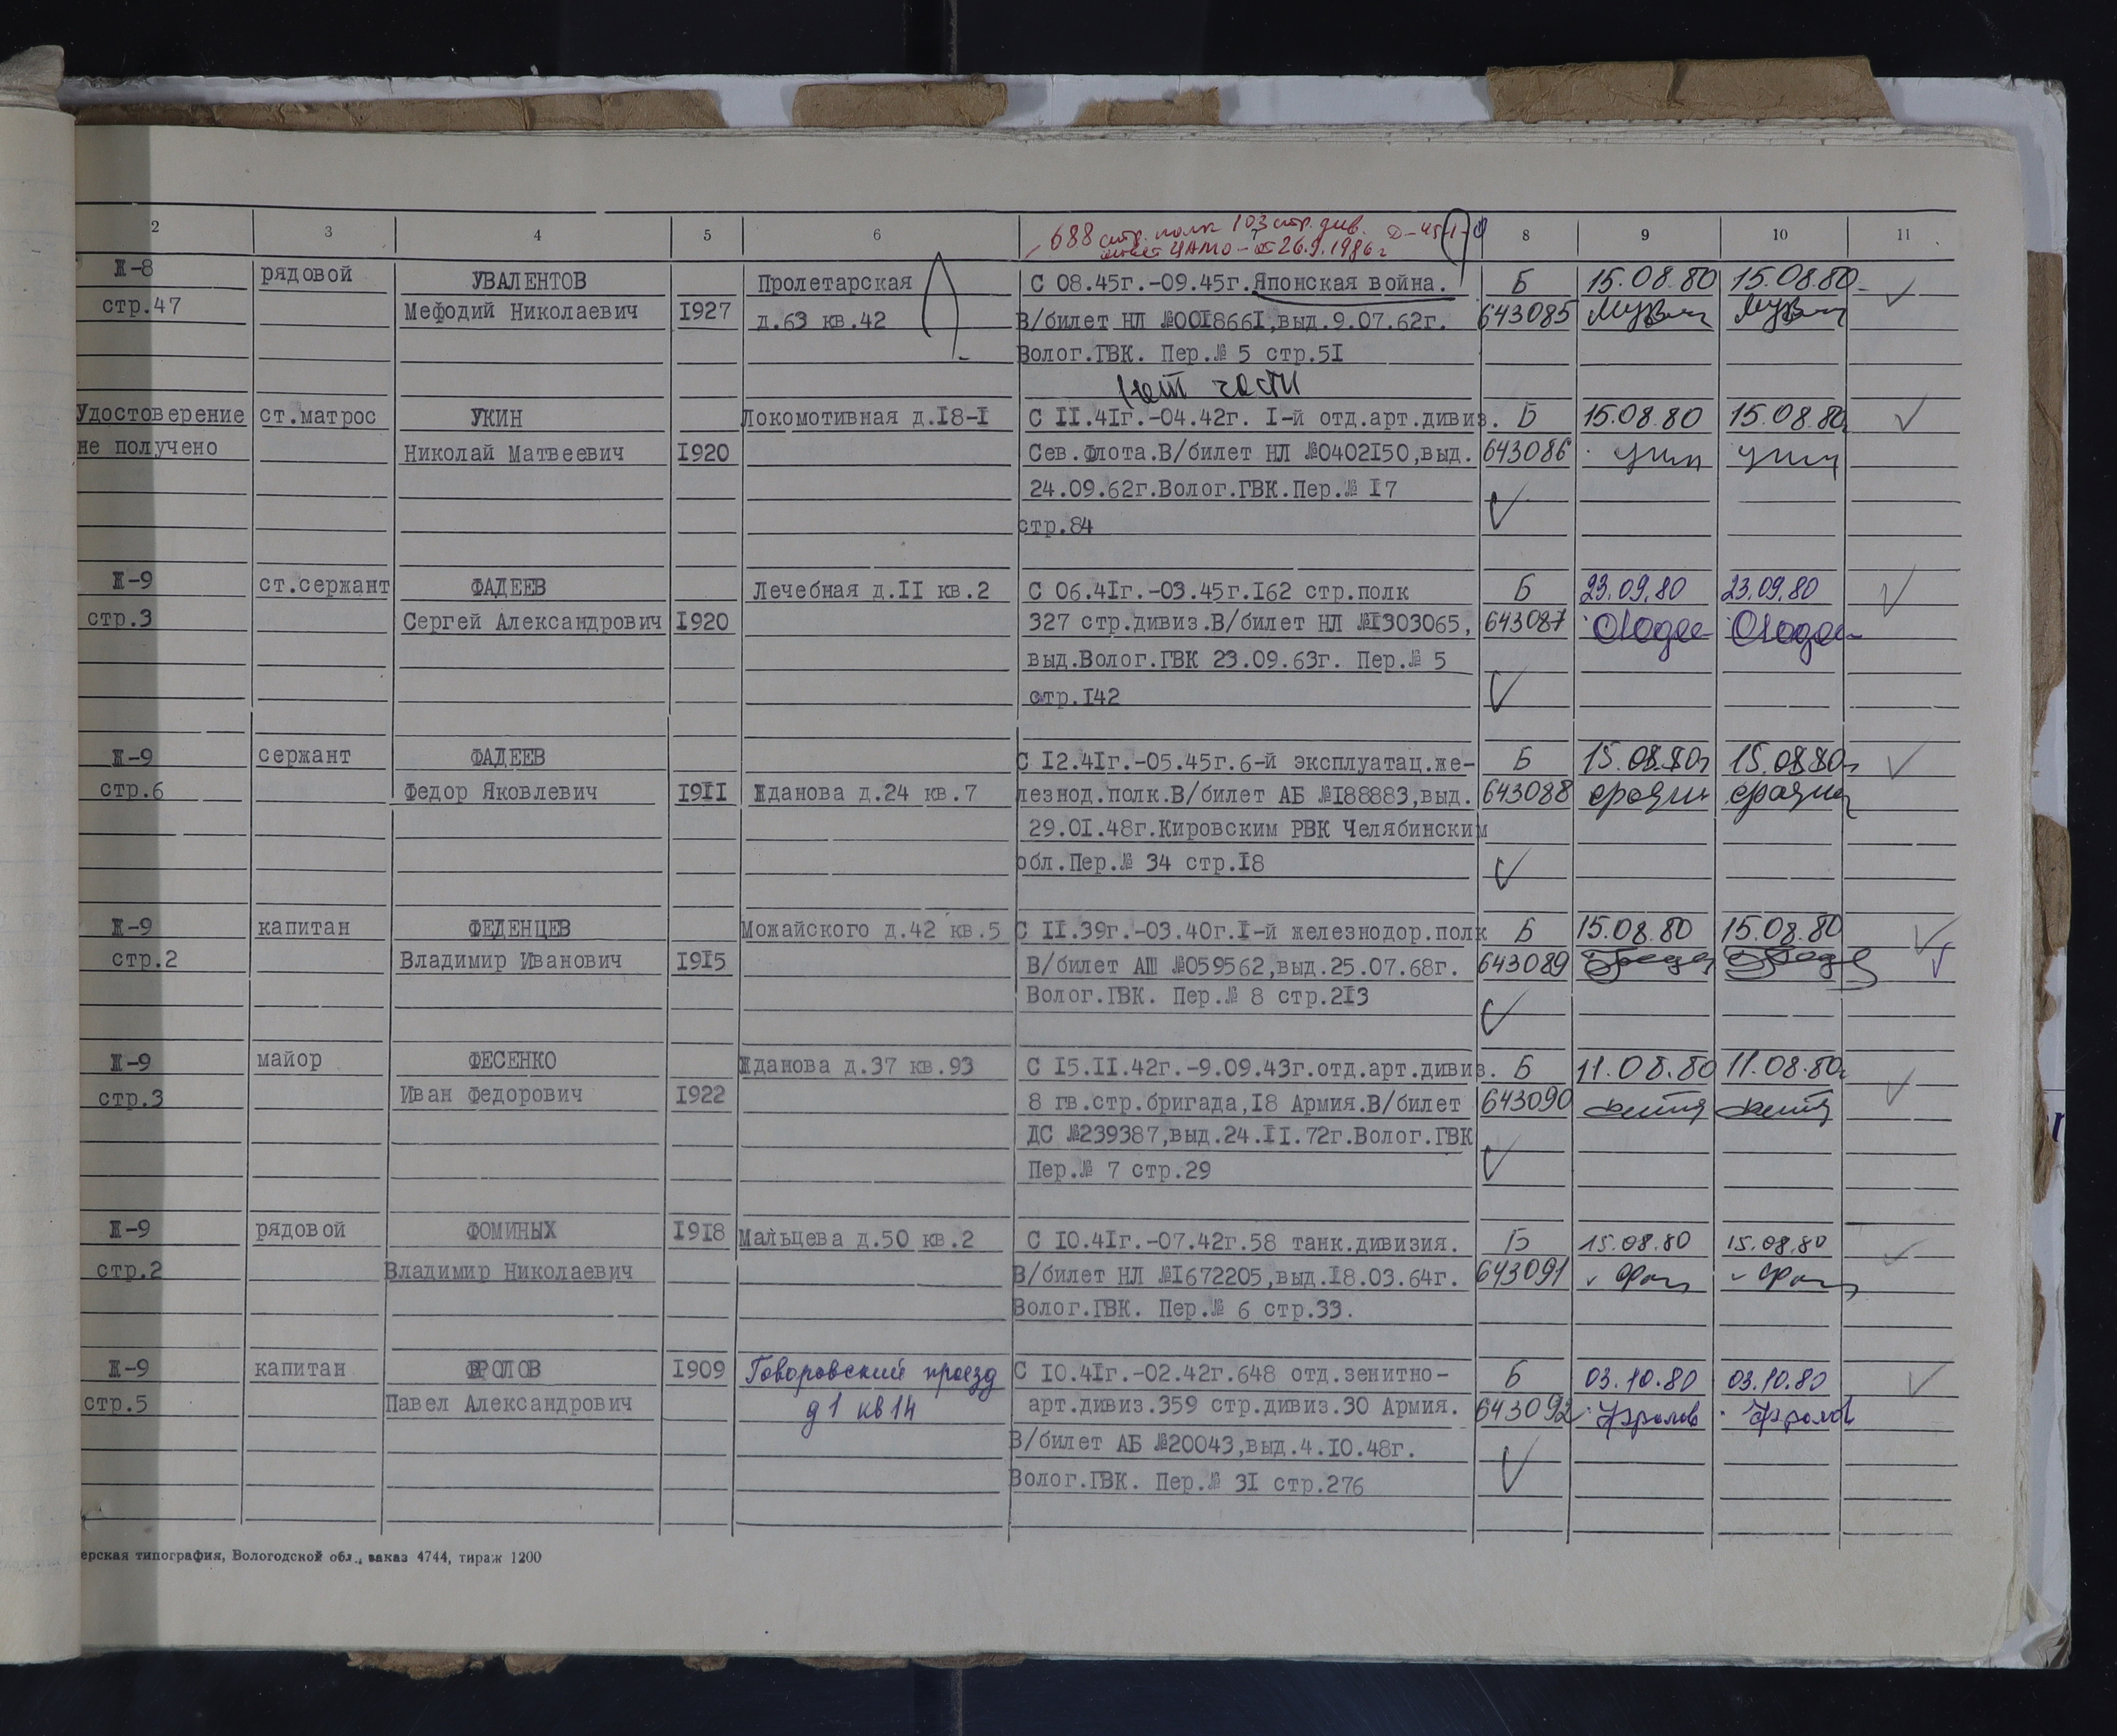 2 3 4 5 6 7 8 9 10 11
688 стр. полк 103 стр. див.
ответ ЦАМО - 26.9.1986г
Ж-8 рядовой УВАЛЕНТОВ Пролетарская С 08.45г.-09.45г.Японская война. Б 15.08.80 15.08.80
стр.47 Мефодий Николаевич 1927 д.63 кв.42 В/билет НЛ №0018661,выд.9.07.62г. 643085
Волог.ГВК. Пер.№ 5 стр.51
нет части
Удостоверение ст.матрос УКИН Локомотивная д.18-1 С 11.41г.-04.42г. 1-й отд.арт.дивиз. Б 15.08.80 15.08.80
не получено Николай Матвеевич 1920 Сев.Флота.В/билет НЛ №0402150,выд. 643086
24.09.62г.Волог.ГВК.Пер.№ 17
стр.84
Ж-9 ст.сержант ФАДЕЕВ Лечебная д.11 кв.2 С 06.41г.-03.45г.162 стр.полк Б 23.09.80 23.09.80
стр.3 Сергей Александрович 1920 327 стр.дивиз.В/билет НЛ №1303065, 643087
выд.Волог.ГВК 23.09.63г. Пер.№ 5
стр.142
Ж-9 сержант ФАДЕЕВ С 12.41г.-05.45г.6-й эксплуатац.же- Б 15.08.80г 15.08.80г
стр.6 Федор Яковлевич 1911 Жданова д.24 кв.7 лезнод.полк.В/билет АБ №188883,выд. 643088
29.01.48г.Кировским РВК Челябинским
обл.Пер.№ 34 стр.18
Ж-9 капитан ФЕДЕНЦЕВ Можайского д.42 кв.5 С 11.39г.-03.40г.1-й железнодор.полк Б 15.08.80 15.08.80
стр.2 Владимир Иванович 1915 В/билет АШ №059562,выд.25.07.68г. 643089
Волог.ГВК. Пер.№ 8 стр.213
Ж-9 майор ФЕСЕНКО Жданова д.37 кв.93 С 15.11.42г.-9.09.43г.отд.арт.дивиз. Б 11.08.80 11.08.80г
стр.3 Иван Федорович 1922 8 гв.стр.бригада,18 Армия.В/билет 643090
ДС №239387,выд.24.11.72г.Волог.ГВК
Пер.№ 7 стр.29
Ж-9 рядовой ФОМИНЫХ 1918 Мальцева д.50 кв.2 С 10.41г.-07.42г.58 танк.дивизия. Б 15.08.80 15.08.80
стр.2 Владимир Николаевич В/билет НЛ №1672205,выд.18.03.64г. 643091
Волог.ГВК. Пер.№ 6 стр.33.
Ж-9 капитан ФРОЛОВ 1909 Говоровский проезд С 10.41г.-02.42г.648 отд.зенитно- Б 03.10.80 03.10.80
стр.5 Павел Александрович д1 кв14 арт.дивиз.359 стр.дивиз.30 Армия. 643092 Фролов Фролов
В/билет АБ №20043,выд.4.10.48г.
Волог.ГВК. Пер.№ 31 стр.276
ерская типография, Вологодской обл., заказ 4744, тираж 1200